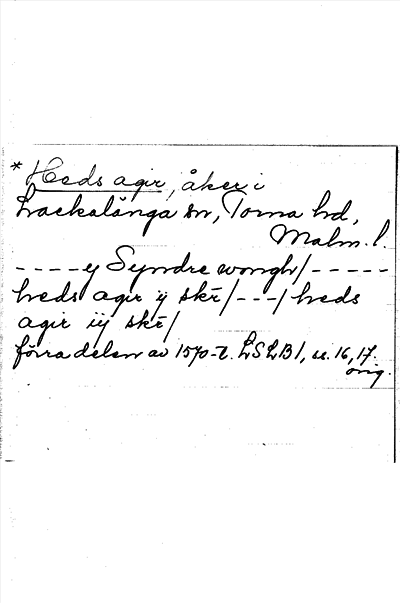 * Heds agir, åker i
Lackalänga sn, Torna hd,
Malm. l.
- - - - y Syndre wongh/ - - - - -
heds agir ij skr/ - - - / heds
agir iij skr/
förra delen av 1570-t. LSLB1, s. 16, 17.
orig.